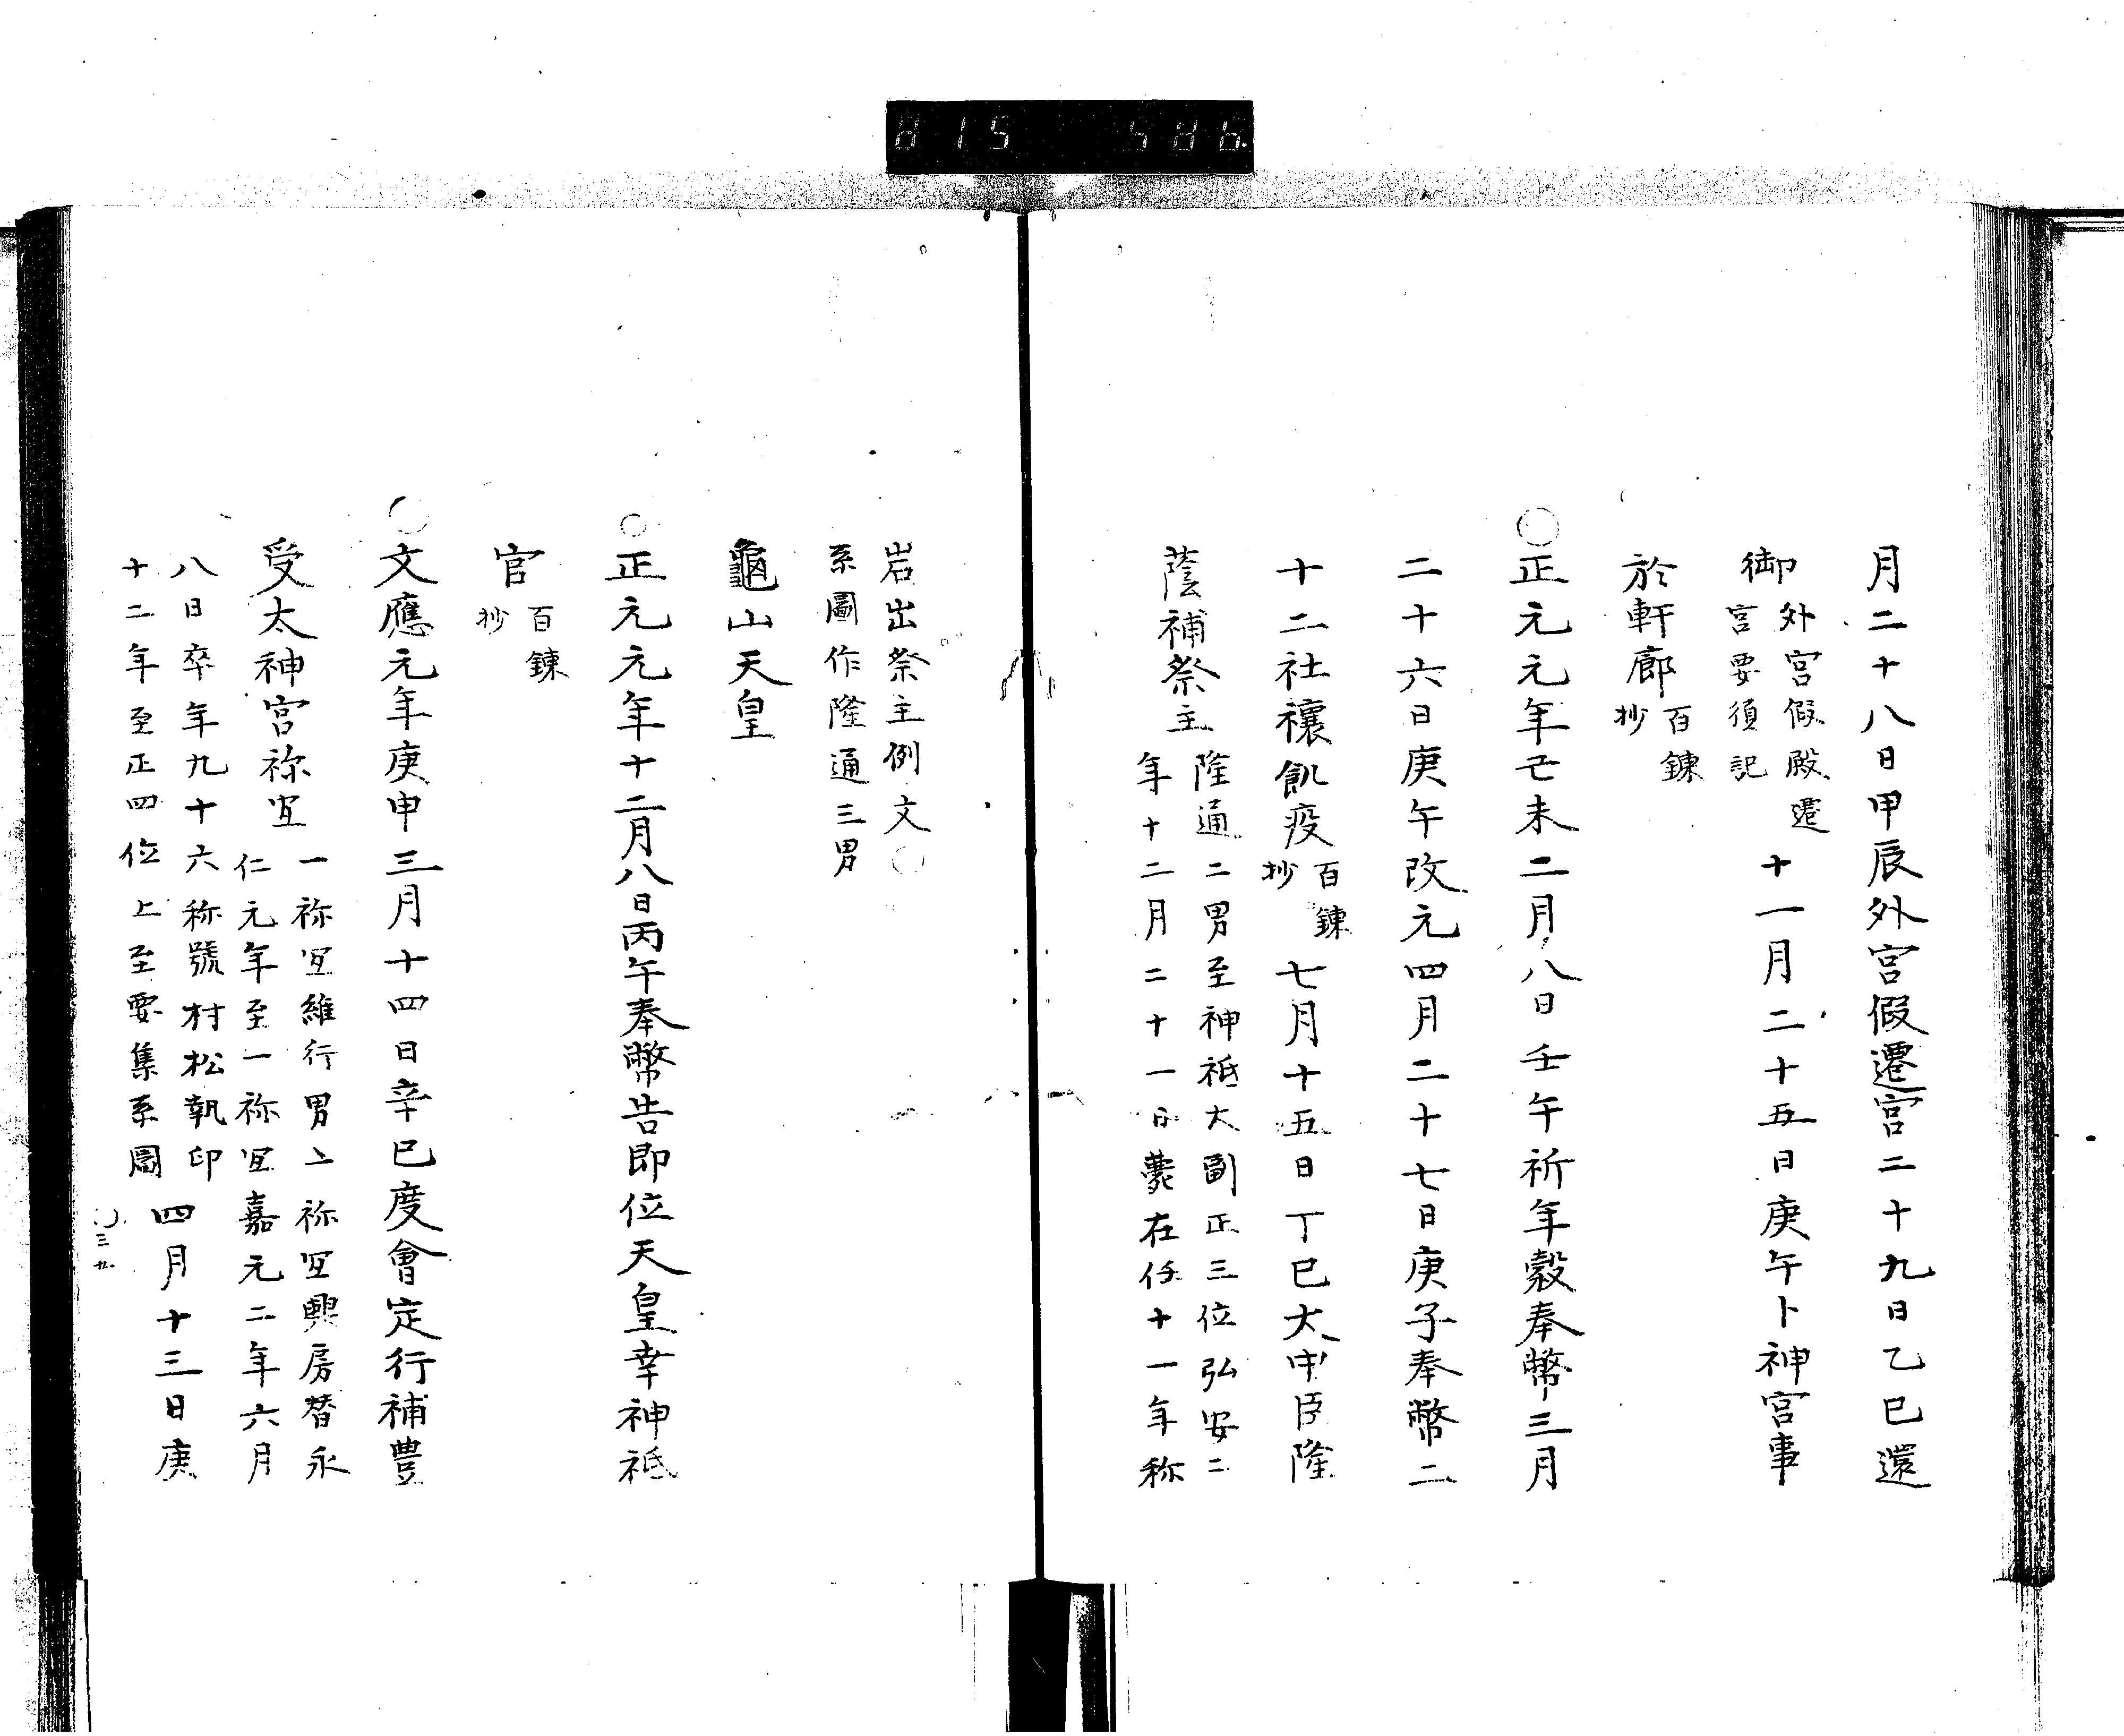 815 586.
月二十八日甲辰外宮假遷宮二十九日乙巳還
御外宮假殿遷宮要須記十一月二十五日庚午卜神宮事
於軒廊百錬抄
○正元元年己未二月八日壬午祈年穀奉幣三月
二十六日庚午改元四月二十七日庚子奉幣二
十二社禳飢疫百錬抄七月十五日丁巳大中臣隆
蔭補祭主隆通二男至神祇大副正三位弘安二
年十二月二十一日薨在任十一年称
岩出祭主例文○
系圖作隆通三男
龜山天皇
○正元元年十二月八日丙午奉幣告即位天皇幸神祇
官百錬抄
○文應元年庚申三月十四日辛巳度會定行補豊
受太神宮祢宜一祢宜維行男二祢宜興房替永
仁元年至一祢宜嘉元二年六月
八日卒年九十六称號村松執印
十二年至正四位上至要集系圖四月十三日庚
○三九